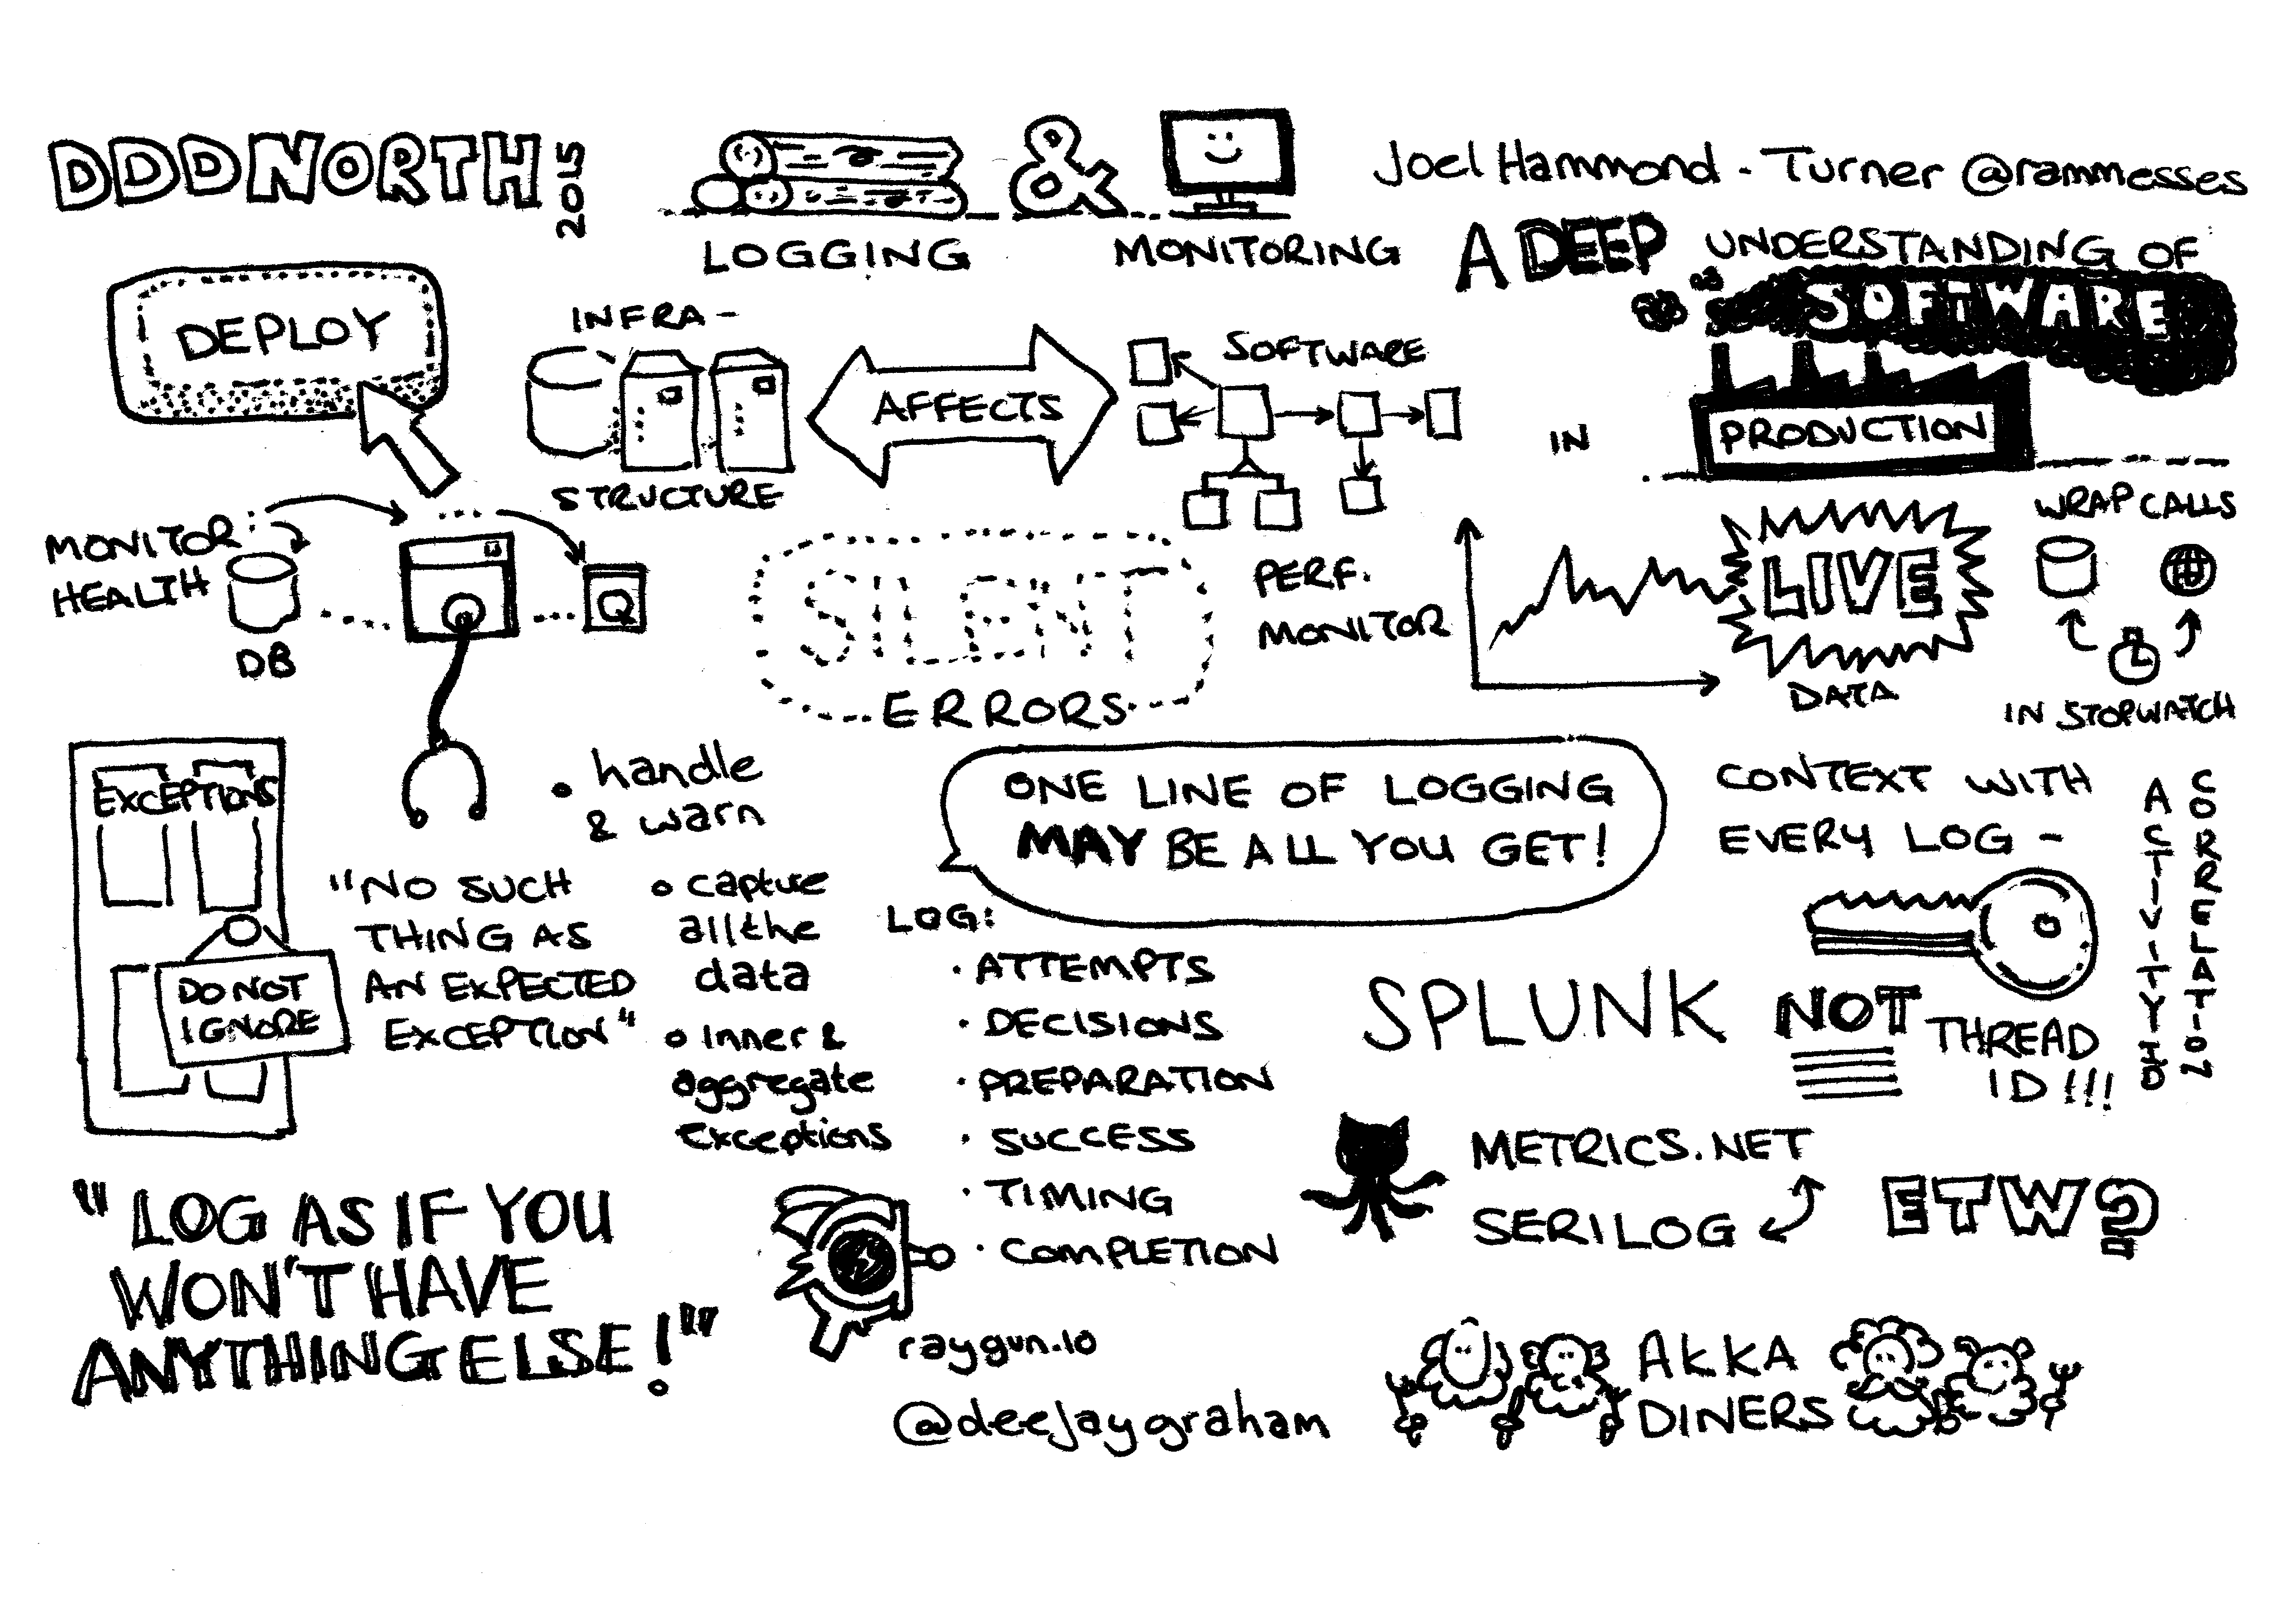 DDDNORTH
2015
LOGGING
&
MONITORING
Joel Hammond-Turner @rammesses
A DEEP UNDERSTANDING OF
SOFTWARE
IN
PRODUCTION
DEPLOY
INFRA-
STRUCTURE
AFFECTS
SOFTWARE
MONITOR
HEALTH
DB
Q
SILENT
ERRORS
PERF.
MONITOR
LIVE
DATA
WRAP CALLS
IN STOPWATCH
EXCEPTIONS
DO NOT
IGNORE
"NO SUCH
THING AS
AN EXPECTED
EXCEPTION"
• handle
& warn
• capture
all the
data
• Inner &
aggregate
exceptions
ONE LINE OF LOGGING
MAY BE ALL YOU GET!
LOG:
· ATTEMPTS
· DECISIONS
· PREPARATION
· SUCCESS
· TIMING
· COMPLETION
CONTEXT WITH
EVERY LOG -
ACTIVITY ID
CORRELATION
NOT THREAD
ID!!!
SPLUNK
METRICS.NET
SERILOG
ETW?
"LOG AS IF YOU
WON'T HAVE
ANYTHING ELSE!"
raygun.io
@deejaygraham
AKKA
DINERS